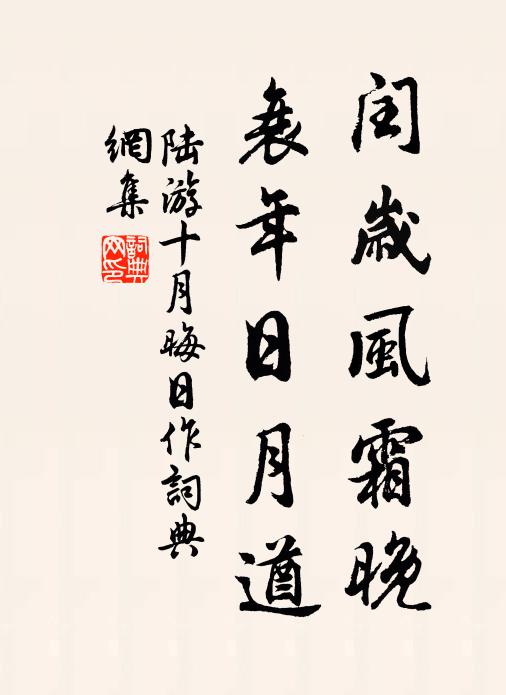 闰歲風霜晚
衰年日月遒
陸游十月晦日作詞典
網集
詞典網印